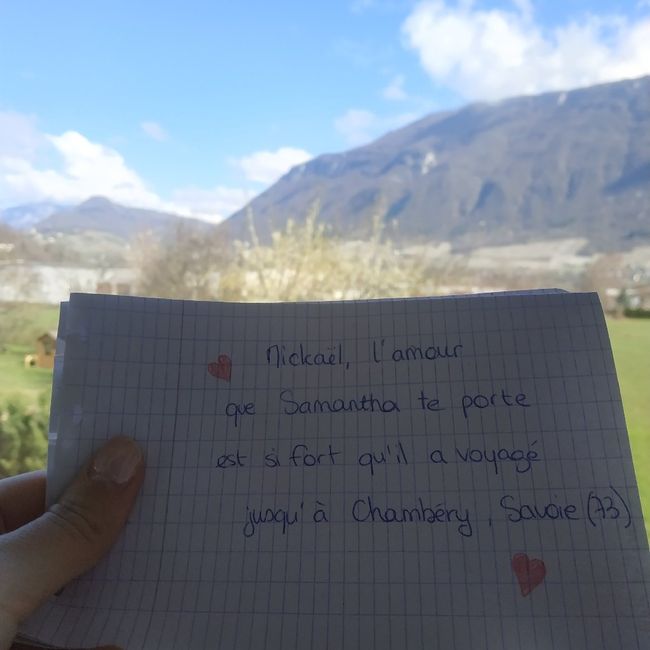 Nickaël, l'amour
que Samantha te porte
est si fort qu'il a voyagé
jusqu'à Chambéry, Savoie (73)